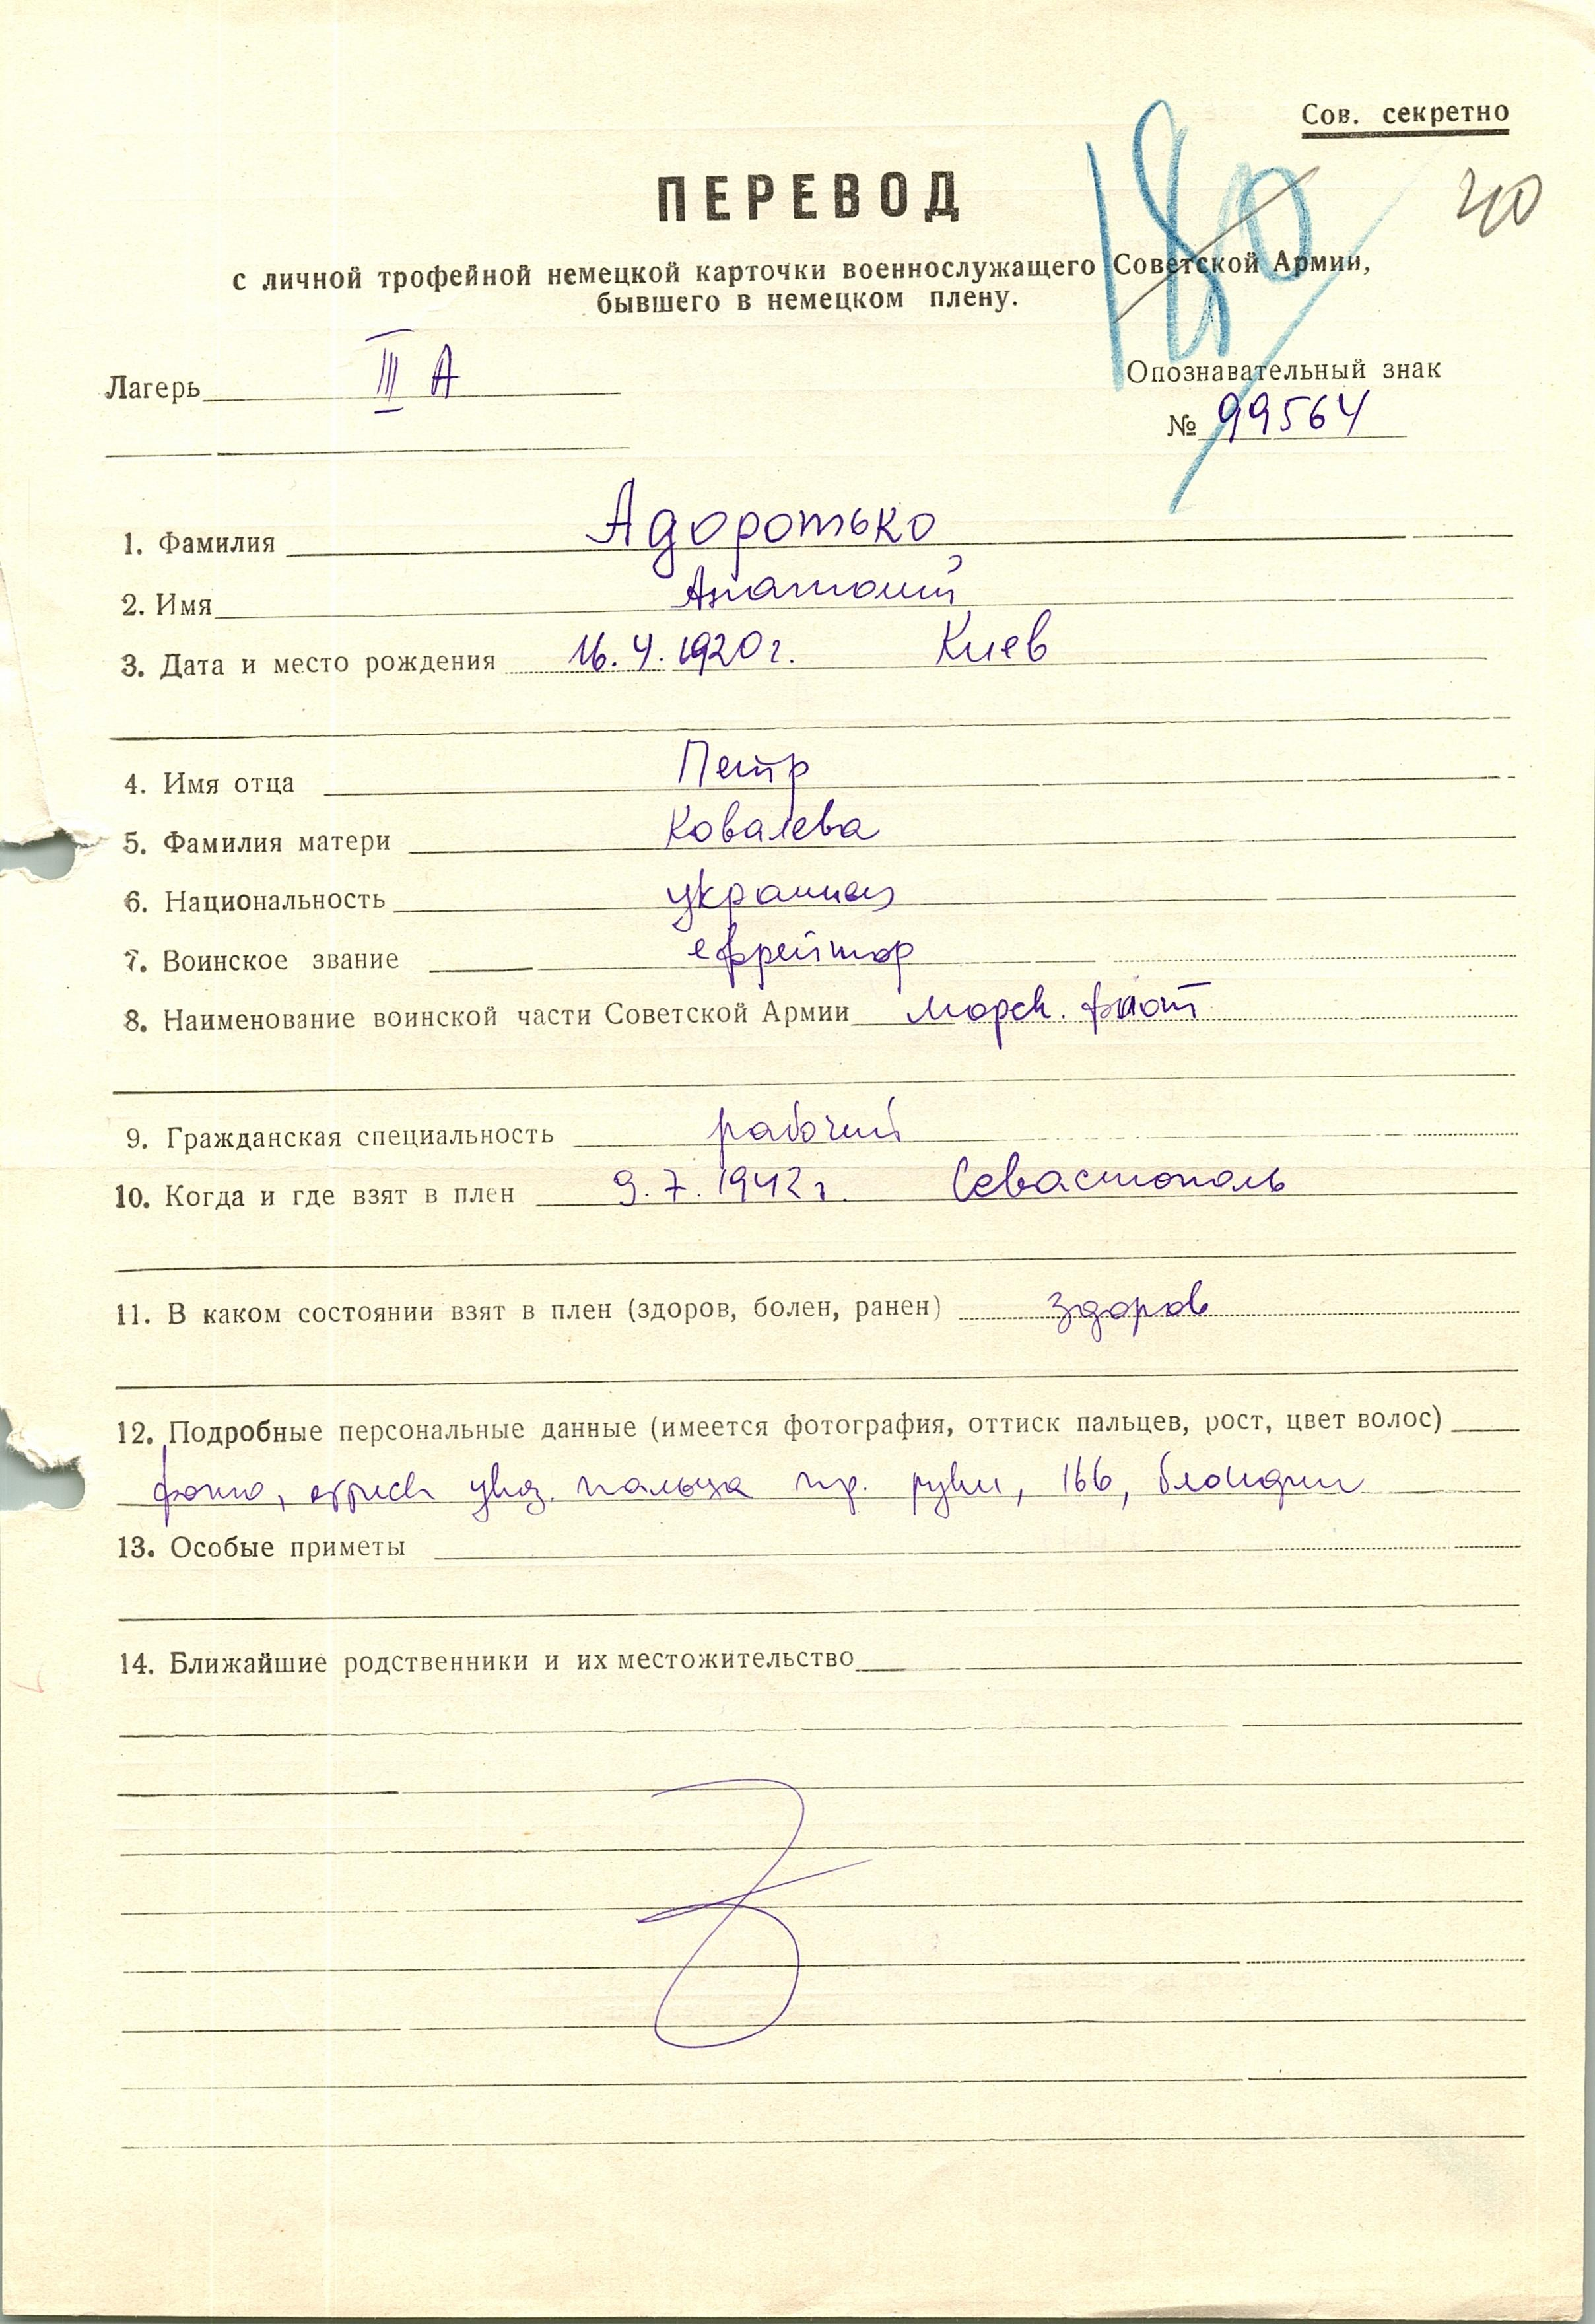 Сов. секретно
180
40
ПЕРЕВОД
с личной трофейной немецкой карточки военнослужащего Советской Армии,
бывшего в немецком плену.
Лагерь III А
Опознавательный знак
№ 99564
1. Фамилия Адоротько
2. Имя Анатолий
3. Дата и место рождения 16.4.1920г. Киев
4. Имя отца Петр
5. Фамилия матери Ковалева
6. Национальность украинец
7. Воинское звание ефрейтор
8. Наименование воинской части Советской Армии морск. флот
9. Гражданская специальность рабочий
10. Когда и где взят в плен 9.7.1942г. Севастополь
11. В каком состоянии взят в плен (здоров, болен, ранен) здоров
12. Подробные персональные данные (имеется фотография, оттиск пальцев, рост, цвет волос)
фото, оттиск указ. пальца пр. руки, 166, блондин
13. Особые приметы
14. Ближайшие родственники и их местожительство